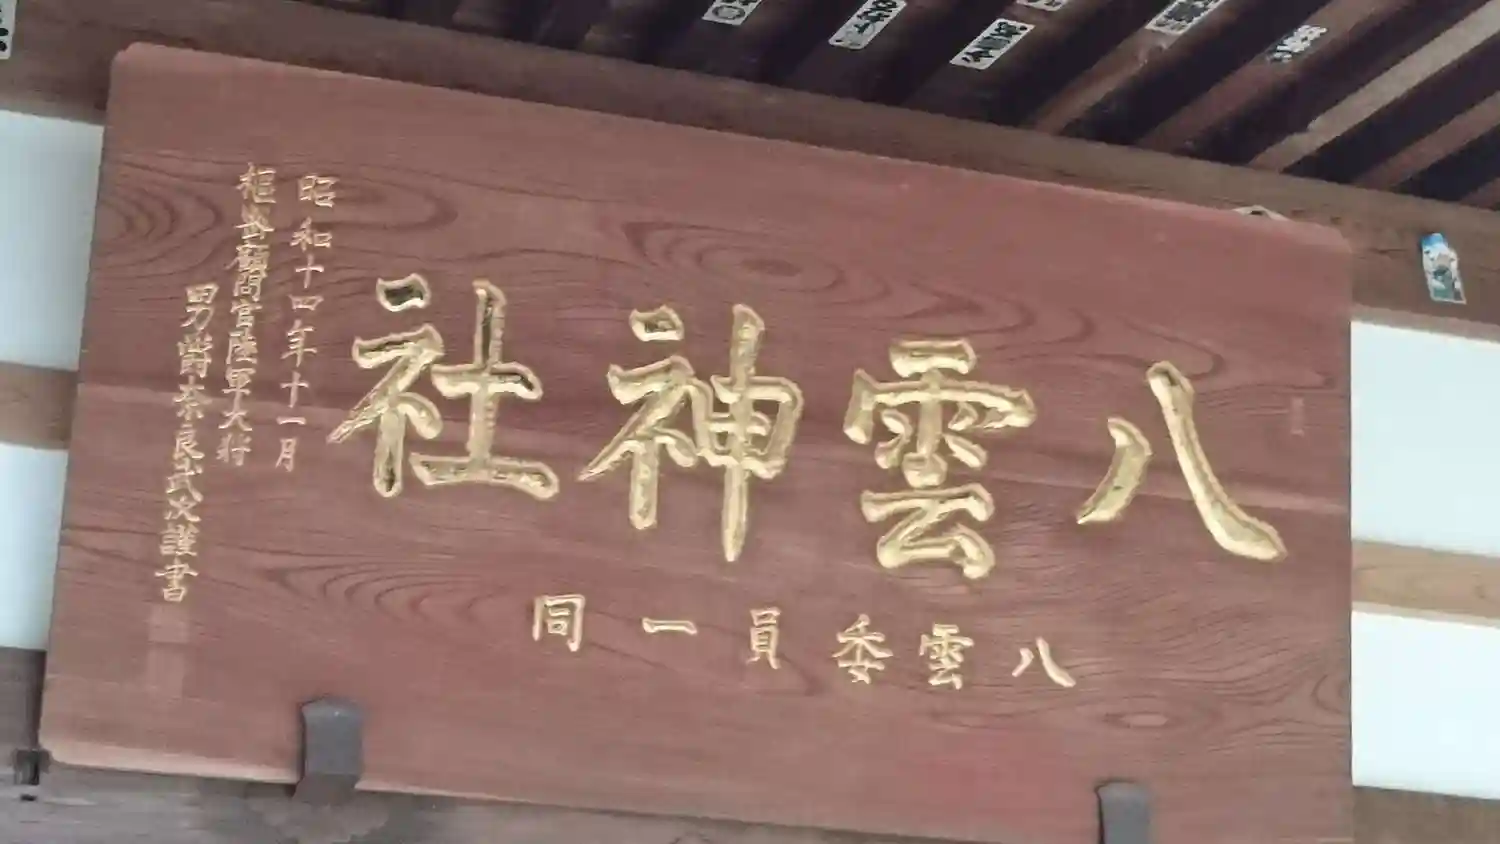 八雲神社
八雲委員一同
昭和十四年十一月
枢密顧問官陸軍大将
男爵奈良武次謹書